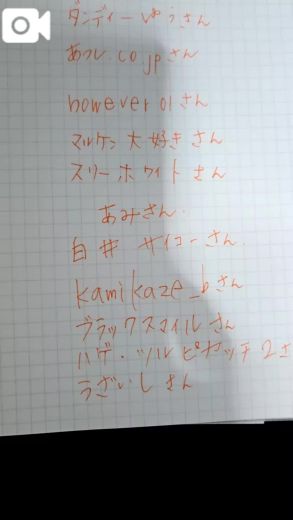 ダンディーしゅうさん
あつし.co jpさん
however01さん
マルケン大好きさん
スリーホワイトさん
あみさん.
白井 サイコーさん
kamikaze_bさん
ブラックスマイルさん
ハゲ・ツルピカッチ2さ
うざいしさん